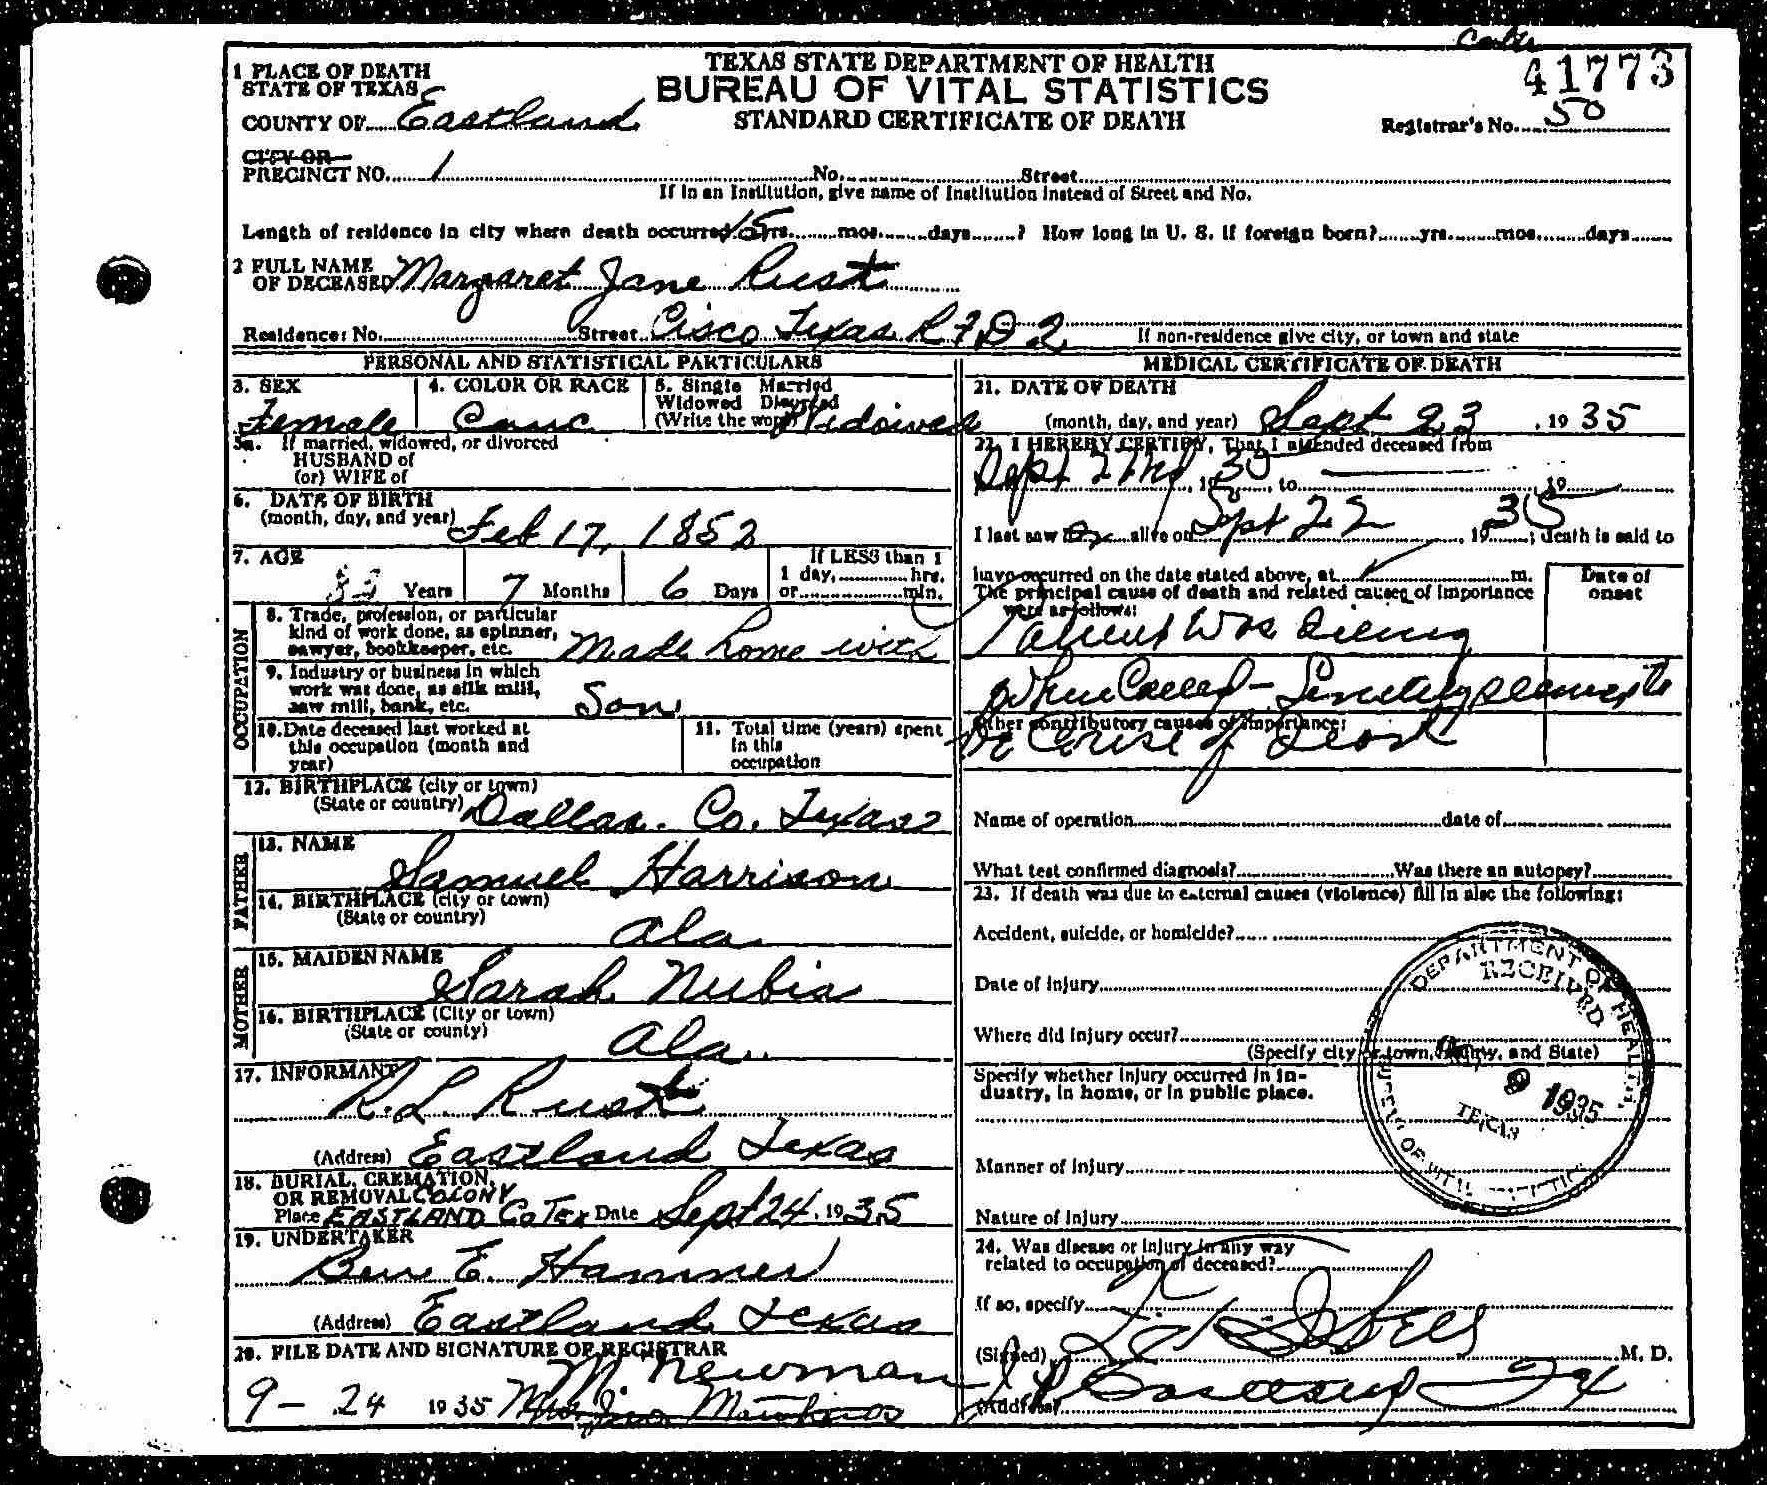 41773
TEXAS STATE DEPARTMENT OF HEALTH
BUREAU OF VITAL STATISTICS
STANDARD CERTIFICATE OF DEATH
1 PLACE OF DEATH
STATE OF TEXAS
COUNTY OF Eastland
Registrar's No. 50
CITY OR
PRECINCT NO. 1 No. Street
If in an Institution, give name of Institution instead of Street and No.
Length of residence in city where death occurred 15 yrs. mos. days ? How long in U. S. if foreign born? yrs. mos. days
2 FULL NAME
OF DECEASED Margaret Jane Rust
Residence: No. Street Cisco Texas R F D 2 If non-residence give city, or town and state
PERSONAL AND STATISTICAL PARTICULARS
3. SEX Female
4. COLOR OR RACE Cauc
5. Single Married
Widowed Divorced
(Write the word) Widowed
5a. If married, widowed, or divorced
HUSBAND of
(or) WIFE of
6. DATE OF BIRTH
(month, day, and year) Feb 17, 1852
7. AGE
83 Years 7 Months 6 Days
If LESS than 1
1 day, hrs.
or min.
OCCUPATION
8. Trade, profession, or particular
kind of work done, as spinner,
sawyer, bookkeeper, etc. Made home with
9. Industry or business in which
work was done, as silk mill,
saw mill, bank, etc. Son
10. Date deceased last worked at
this occupation (month and
year)
11. Total time (years) spent
in this
occupation
12. BIRTHPLACE (city or town)
(State or country) Dallas. Co. Texas
FATHER
13. NAME
Samuel Harrison
14. BIRTHPLACE (city or town)
(State or country) Ala
MOTHER
15. MAIDEN NAME
Sarah Nubia
16. BIRTHPLACE (City or town)
(State or county) Ala.
17. INFORMANT
R. L. Rust
(Address) Eastland Texas
18. BURIAL, CREMATION,
OR REMOVAL COLONY
Place EASTLAND Co Tex Date Sept 24, 1935
19. UNDERTAKER
Ben E. Hamner
(Address) Eastland Texas
20. FILE DATE AND SIGNATURE OF REGISTRAR
M. Newman
9 - 24 1935 Mrs.
MEDICAL CERTIFICATE OF DEATH
21. DATE OF DEATH
(month, day, and year) Sept 23, 1935
22. I HEREBY CERTIFY, That I attended deceased from
Sept 19 to 19
I last saw alive on Sept 22, 1935; death is said to
have occurred on the date stated above, at m.
The principal cause of death and related causes of importance
were as follows:
Date of
onset
Patient Was Dieing
When Called - Senility seems to
Other contributory causes of importance:
be Cause of Death
Name of operation date of
What test confirmed diagnosis? Was there an autopsy?
23. If death was due to external causes (violence) fill in also the following:
Accident, suicide, or homicide?
Date of injury
Where did injury occur?
(Specify city or town, county, and State)
Specify whether injury occurred in in-
dustry, in home, or in public place.
Manner of injury
Nature of injury
DEPARTMENT OF HEALTH
RECEIVED
9 1935
TEXAS
BUREAU OF VITAL STATISTICS
24. Was disease or injury in any way
related to occupation of deceased?
If so, specify
(Signed) M. D.
(Address) Eastland Tx